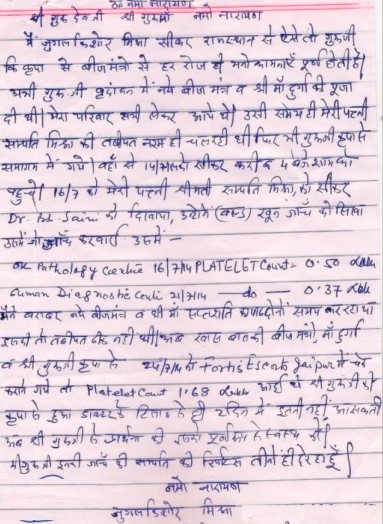 ॐ नमो नारायण
श्री गुरुदेवजी श्री गुरुमाँ नमो नारायण
मैं जुगल किशोर मिश्रा सीकर राजस्थान से वैसे तो गुरुजी
कि कृपा से बीज मंत्रो से हर रोज ही मनोकामनाएँ पूर्ण होती है।
श्री गुरुजी वृंदावन में नये बीज मंत्र व श्री माँ दुर्गा की पूजा
दी थी। मेरा परिवार लेकर आये थे। उसी समय ही मेरी पत्नी
सम्पति मिश्रा की तबीयत नरम ही चल रही थी फिर भी गुरुजी कृपा से
समागम में गये। वहाँ से 14/7 सीकर करीब 4 बजे शाम को
पहुचे। 16/7 को मेरी पत्नी श्रीमती सम्पति मिश्रा, को सीकर
Dr. Jain को दिखाया, उन्होने (ब्लड) खून जाँच को लिखा
उसमें जो जाँच करवाई उसमें -
Pathology Centre 16/7/14 PLATELET Count - 0.50 Lakh
Suman Diagnostic Centre 21/7/14 — do — 0.37 Lakh
मैंने बराबर नये बीज मंत्र व श्री माँ का पाठ दोनों समय कर रहा था
इसकी तो तबीयत ठीक नहीं थी। बीज मंत्रो, माँ दुर्गा
व श्री गुरुजी कृपा के 24/7/14 को Fortis Escorts Jaipur में चेक
कराने गये तो Platelet Count 1.68 Lakh आई जो श्री गुरुजी की
कृपा से हुआ डाक्टर के हिसाब से ही 2 दिन में इतनी नहीं आ सकती
अब श्री गुरुजी से प्रार्थना की स्वस्थ करें।
श्री गुरुजी इनकी जाँच की सम्पति की रिपोर्ट्स तीनो ही दे रहा हूँ।
नमो नारायण
जुगल किशोर मिश्रा